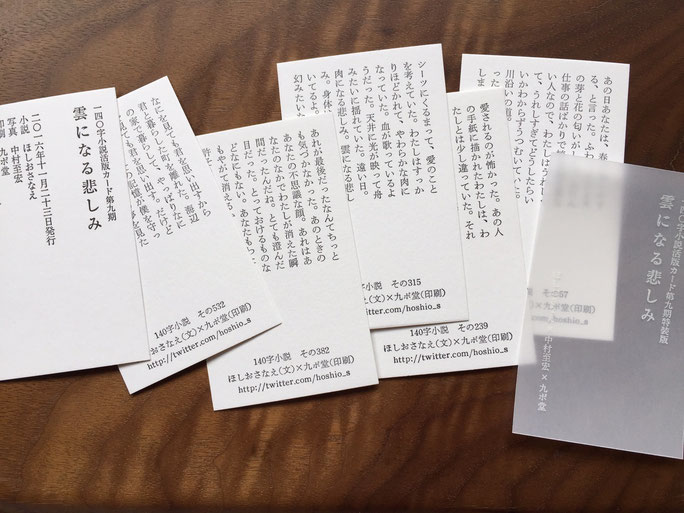 一四〇字小説活版カード第九期
雲になる悲しみ
二〇一六年十一月二十三日発行
小説 ほしおさなえ
写真 中村至宏
印刷 九ポ堂
なにを見ても君を思い出すから
140字小説 その532
おさなえ(文)×九ポ堂(印刷)
http://twitter.com/hoshio_s
あれが最後だったなんてちっと
も気づかなかった。あのときの
あなたの不思議な顔。あれはあ
なたのなかでわたしが消えた瞬
間だったんだね。とても澄んだ
目だった。とっておけるものな
どなにもない。
140字小説 その382
ほしおさなえ(文)×九ポ堂(印刷)
http://twitter.com/hoshio_s
シーツにくるまって、愛のこと
を考えていた。わたしはすっか
りほどかれて、やわらかな肉に
なっていた。血が歌っているよ
うだった。天井に光が映って舟
みたいに揺れていた。遠い日、
肉になる悲しみ。雲になる悲し
み。身体に
いてるよ。
幻みたいな
その315
(文)×九ポ堂(印刷)
com/hoshio_s
愛されるのが怖かった。あの人
の手紙に描かれたわたしは、わ
たしとは少し違っていた。それ
140字小説 その239
ほしおさなえ(文)×九ポ堂(印刷)
http://twitter.com/hoshio_s
あの日あなたは、春
る、と言った。ふわ
の芽と花の匂いが
仕事の話ばかりで
い人なので、わたしはうれし
て、うれしすぎてどうしたらい
いかわからずうつむいていた。
川沿いの道。
その67
九ポ堂(印刷)
com/hoshio_s
一四〇字小説活版カード第九期特装版
雲になる悲しみ
中村至宏×九ポ堂